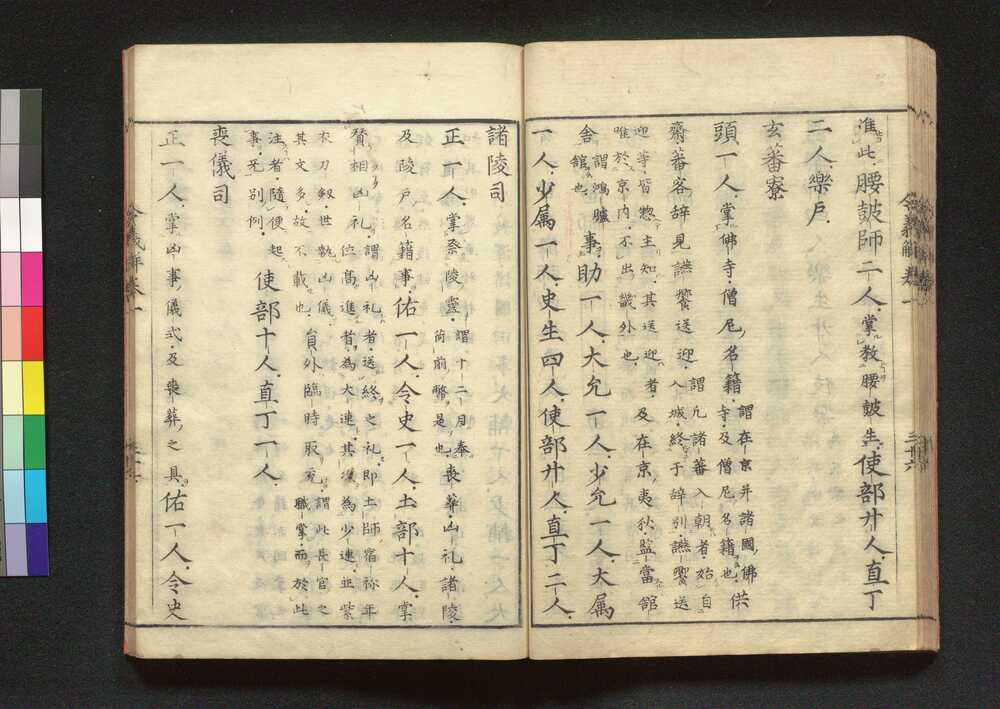 准此腰皷師二人掌教腰皷生使部廾人直丁
二人樂戸
玄蕃寮
頭一人掌佛寺僧尼名籍謂在京并諸國佛寺及僧尼名籍也供
齋蕃客辞見讌饗送迎謂凡諸蕃入朝者始自入城終于辞別讌饗送
迎等皆惣主知其送迎者
唯於京内不出畿外也及在京夷狄監當舘
舎謂鴻臚舘也事助一人大允一人少允一人大属
一人少属一人史生四人使部廾人直丁二人
諸陵司
正一人掌祭陵霊謂十二月奉荷前幣是也喪葬凶礼諸陵
及陵戸名籍事佑一人令史一人土部十人掌
賛相凶礼謂凶礼者送終之礼即土師宿祢年位高進者為大連其次為少連並紫
衣刀釼世執凶儀
其文多故不載也員外臨時取充謂此長官之職掌而於此
注者隨便起
事无別例使部十人直丁一人
喪儀司
正一人掌凶事儀式及喪葬之具佑一人令史
令義解巻一
三十六